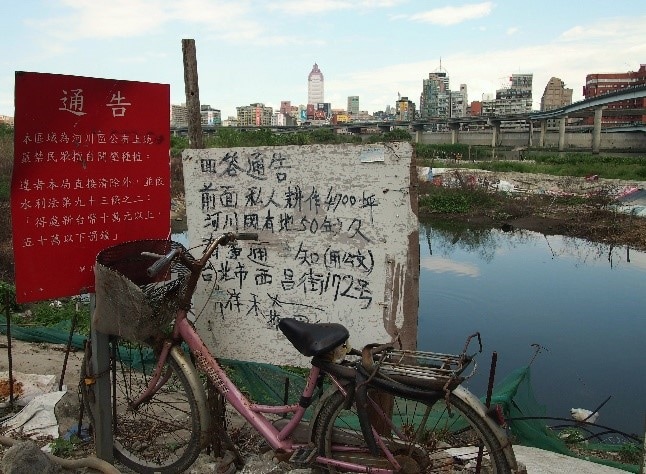 通告
本區域為河川區公有土地
嚴禁民眾擅自開墾種植。
違者本局直接清除外，並依
水利法第九十三條之二：
「得處新台幣十萬元以上，
五十萬以下罰鍰」
回答通告
前面私人耕作4700坪
河川國有地50年久
有事通知(用公文)
台北市西昌街172号
祥禾